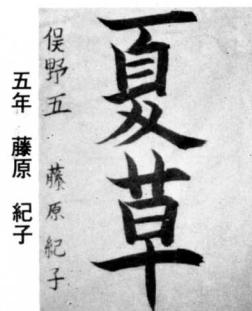 夏草
俣野五 藤原紀子
五年 藤原 紀子